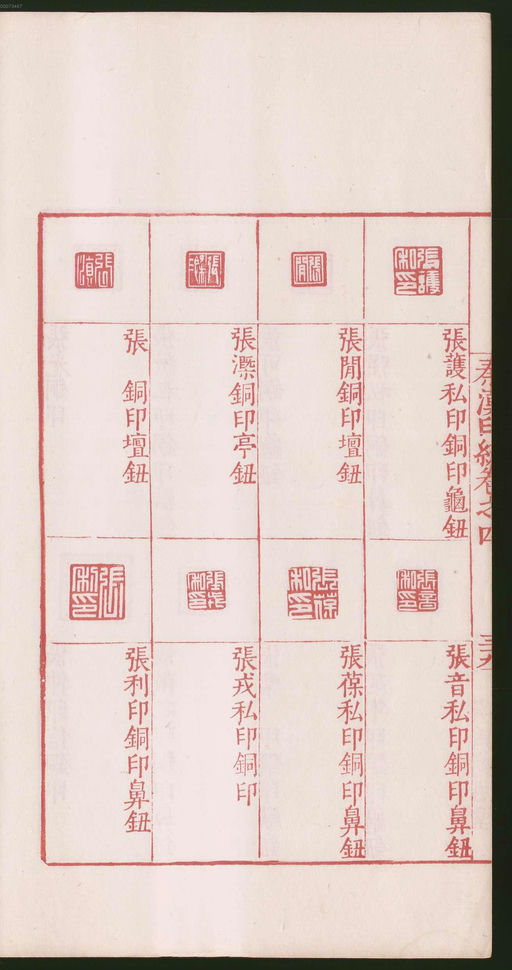 張護私印銅印龜鈕
張閒銅印壇鈕
張濼銅印亭鈕
張　銅印壇鈕
張音私印銅印鼻鈕
張葆私印銅印鼻鈕
張戎私印銅印
張利印銅印鼻鈕